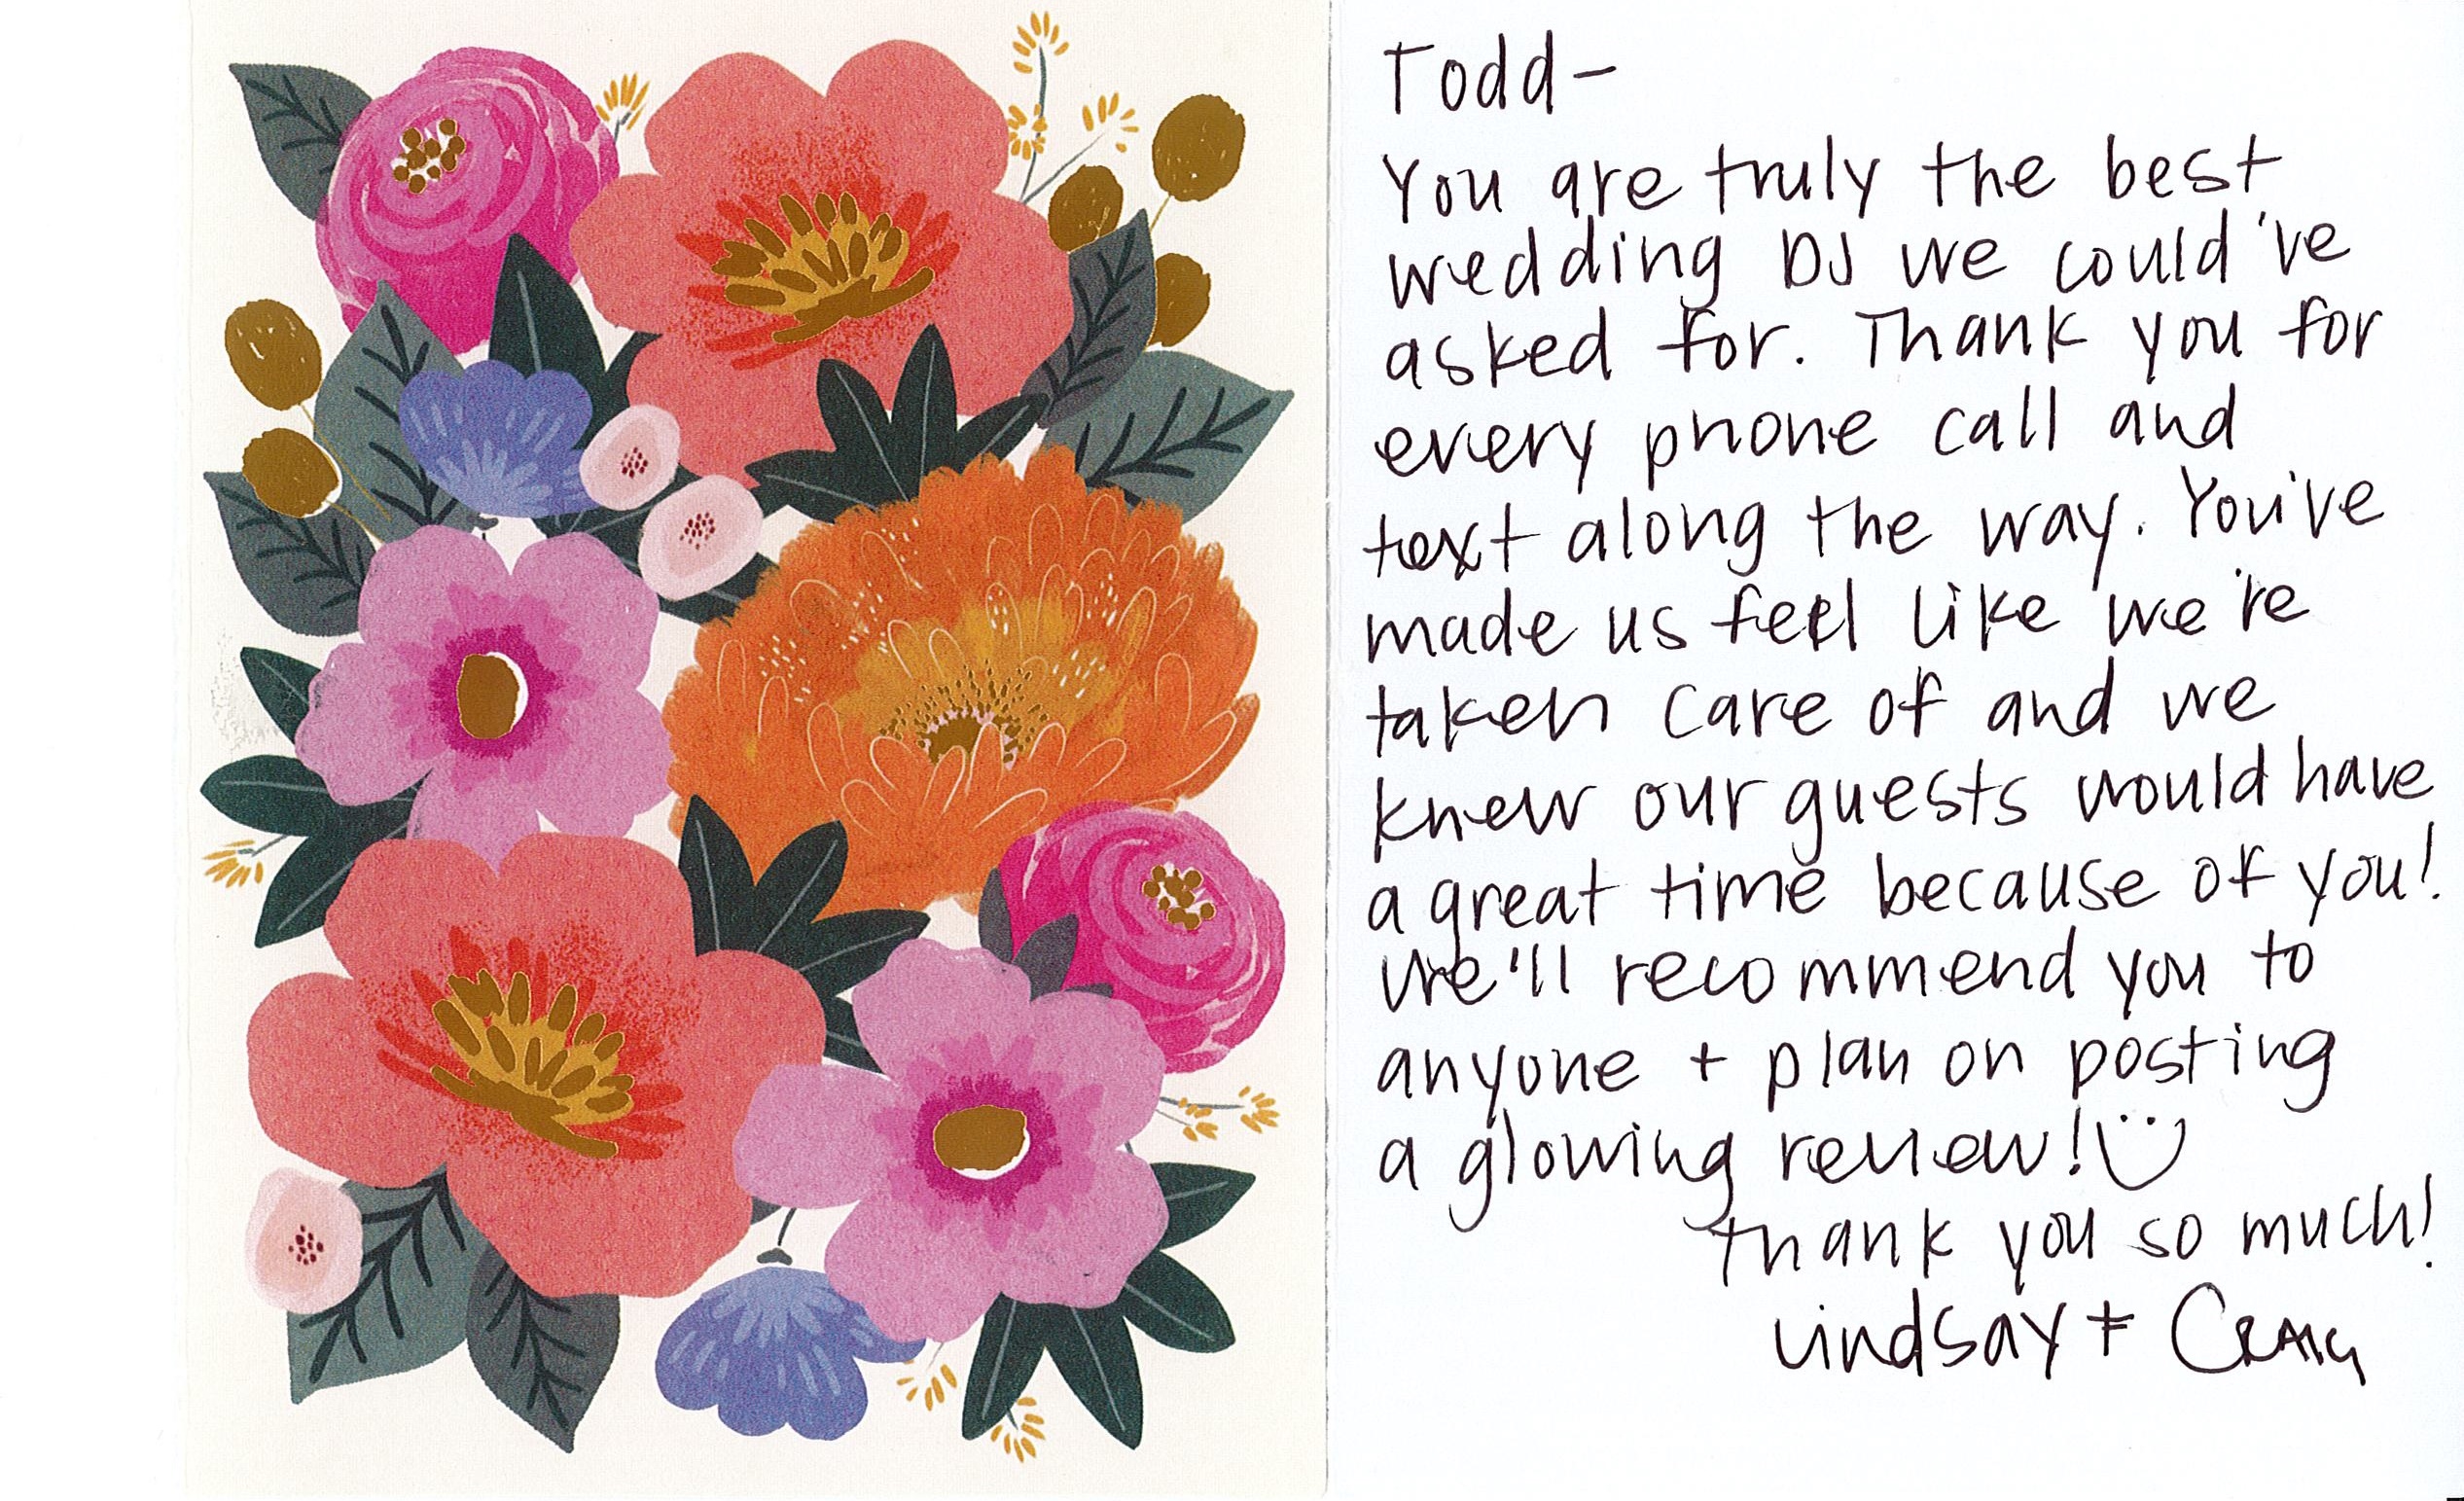 Todd-
You are truly the best
wedding DJ we could've
asked for. Thank you for
every phone call and
text along the way. You've
made us feel like we're
taken care of and we
knew our guests would have
a great time because of you!
We'll recommend you to
anyone + plan on posting
a glowing review! :)
Thank you so much!
Lindsay + Craig